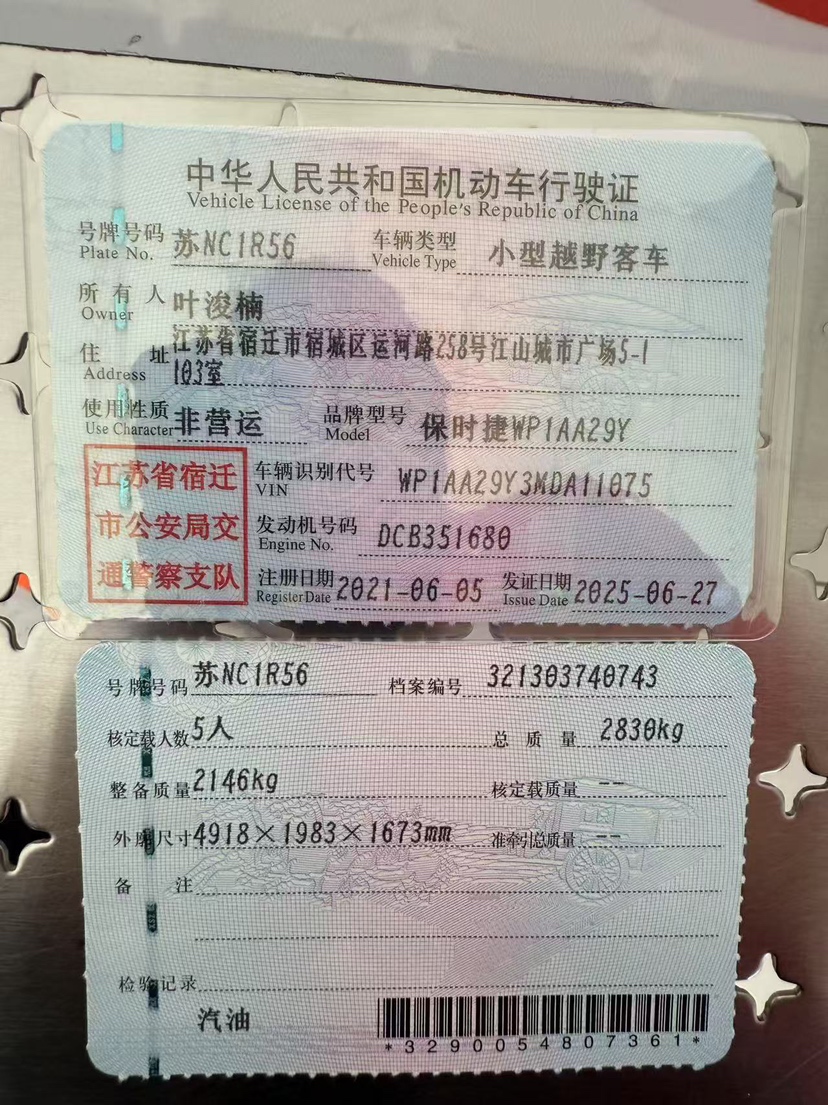 中华人民共和国机动车行驶证
Vehicle License of the People's Republic of China
号牌号码 苏NC1R56 车辆类型 小型越野客车
Plate No. Vehicle Type
所有人 叶浚楠
Owner
住址 江苏省宿迁市宿城区运河路258号江山城市广场5-1
Address 103室
使用性质 非营运 品牌型号 保时捷WP1AA29Y
Use Character Model
江苏省宿迁
市公安局交
通警察支队
车辆识别代号 WP1AA29Y3MDA11075
VIN
发动机号码 DCB351680
Engine No.
注册日期 2021-06-05 发证日期 2025-06-27
Register Date Issue Date
号牌号码 苏NC1R56 档案编号 321303740743
核定载人数 5人 总质量 2830kg
整备质量 2146kg 核定载质量 --
外廓尺寸 4918×1983×1673mm 准牵引总质量 --
备注
检验记录
汽油
*3290054807361*